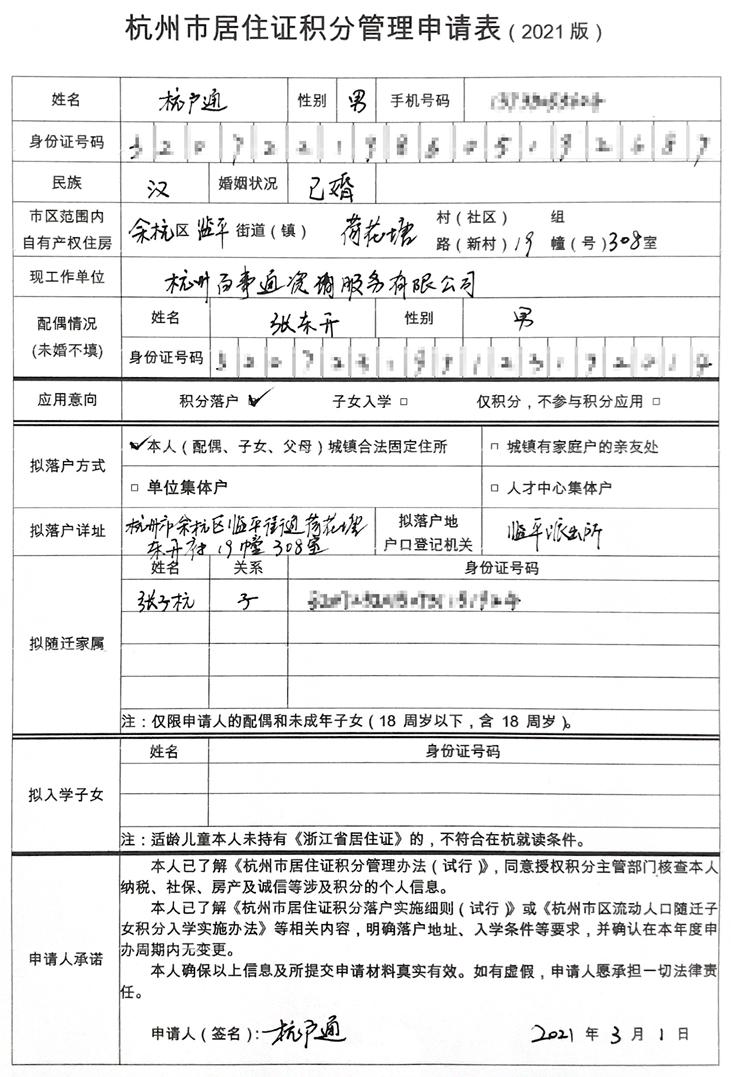 杭州市居住证积分管理申请表（2021 版）
姓名 杭户通 性别 男 手机号码
身份证号码
民族 汉 婚姻状况 已婚
市区范围内 自有产权住房 余杭区 临平 街道（镇） 荷花塘 村（社区） 组
路（新村）19 幢（号）308室
现工作单位 杭州百事通咨询服务有限公司
配偶情况 （未婚不填） 姓名 张东开 性别 男
身份证号码
应用意向 积分落户 ☑ 子女入学 □ 仅积分，不参与积分应用 □
拟落户方式 ☑本人（配偶、子女、父母）城镇合法固定住所 □ 城镇有家庭户的亲友处
□ 单位集体户 □ 人才中心集体户
拟落户详址 杭州市余杭区临平街道荷花塘
东开府 19幢 308室
拟落户地 户口登记机关 临平派出所
拟随迁家属 姓名 关系 身份证号码
张子杭 子
注：仅限申请人的配偶和未成年子女（18 周岁以下，含 18 周岁）。
拟入学子女 姓名 身份证号码
注：适龄儿童本人未持有《浙江省居住证》的，不符合在杭就读条件。
申请人承诺
本人已了解《杭州市居住证积分管理办法（试行）》，同意授权积分主管部门核查本人
纳税、社保、房产及诚信等涉及积分的个人信息。
本人已了解《杭州市居住证积分落户实施细则（试行）》或《杭州市区流动人口随迁子
女积分入学实施办法》等相关内容，明确落户地址、入学条件等要求，并确认在本年度申
办周期内无变更。
本人确保以上信息及所提交申请材料真实有效。如有虚假，申请人愿承担一切法律责
任。
申请人（签名）：杭户通 2021 年 3 月 1 日